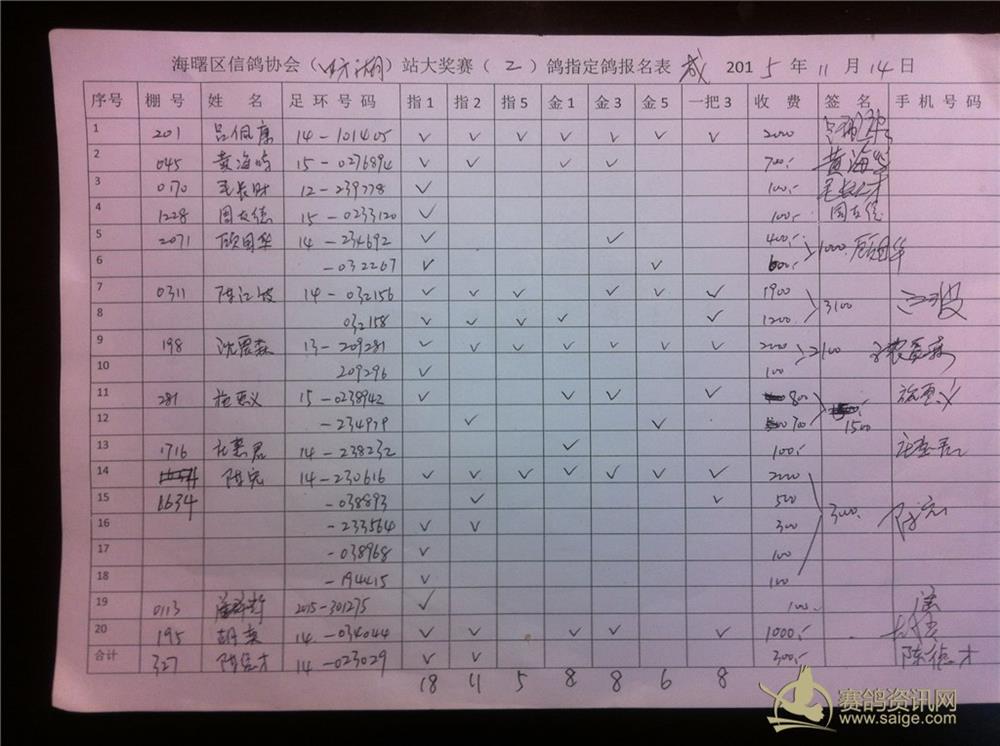 海曙区信鸽协会（ 湖）站大奖赛（2）鸽指定鸽报名表 成 2015年11月14日
序号 棚号 姓名 足环号码 指1 指2 指5 金1 金3 金5 一把3 收费 签名 手机号码
1 201 吕佩康 14-101405 ✓ ✓ ✓ ✓ ✓ ✓ ✓ 2000
2 045 黄海 15-0276894 ✓ ✓ ✓ ✓ 700.- 黄海
3 0170 毛长财 12-239778 ✓ 100.- 毛长才
4 1228 周友德 15-0233120 ✓ 100.- 周友德
5 2071 顾国华 14-234692 ✓ ✓ 400.- 1000. 顾国华
6 -032267 ✓ ✓ 600.-
7 0311 陈江波 14-032156 ✓ ✓ ✓ ✓ ✓ ✓ 1900 3100 江波
8 032158 ✓ ✓ ✓ ✓ ✓ 1200
9 198 沈震森 13-209281 ✓ ✓ ✓ ✓ ✓ ✓ ✓ 2000 2100
10 209296 ✓ 100
11 281 施 义 15-0238942 ✓ ✓ ✓ ✓ 800 施 义
12 -234979 ✓ ✓ 700 1500
13 1716 君 14-238232 ✓ 100.-
14 陈宪 14-230616 ✓ ✓ ✓ ✓ ✓ ✓ ✓ 2000
15 1634 -038893 ✓ ✓ 500
16 -233564 ✓ ✓ 300 3000.
17 -038968 ✓ 100
18 -194415 ✓ 100
19 0113 2015-301275 ✓ 100.-
20 195 胡 14-034044 ✓ ✓ ✓ ✓ ✓ 1000.-
合计 327 陈德才 14-023029 ✓ ✓ 300.- 陈德才
18 11 5 8 8 6 8
赛鸽资讯网
www.saige.com